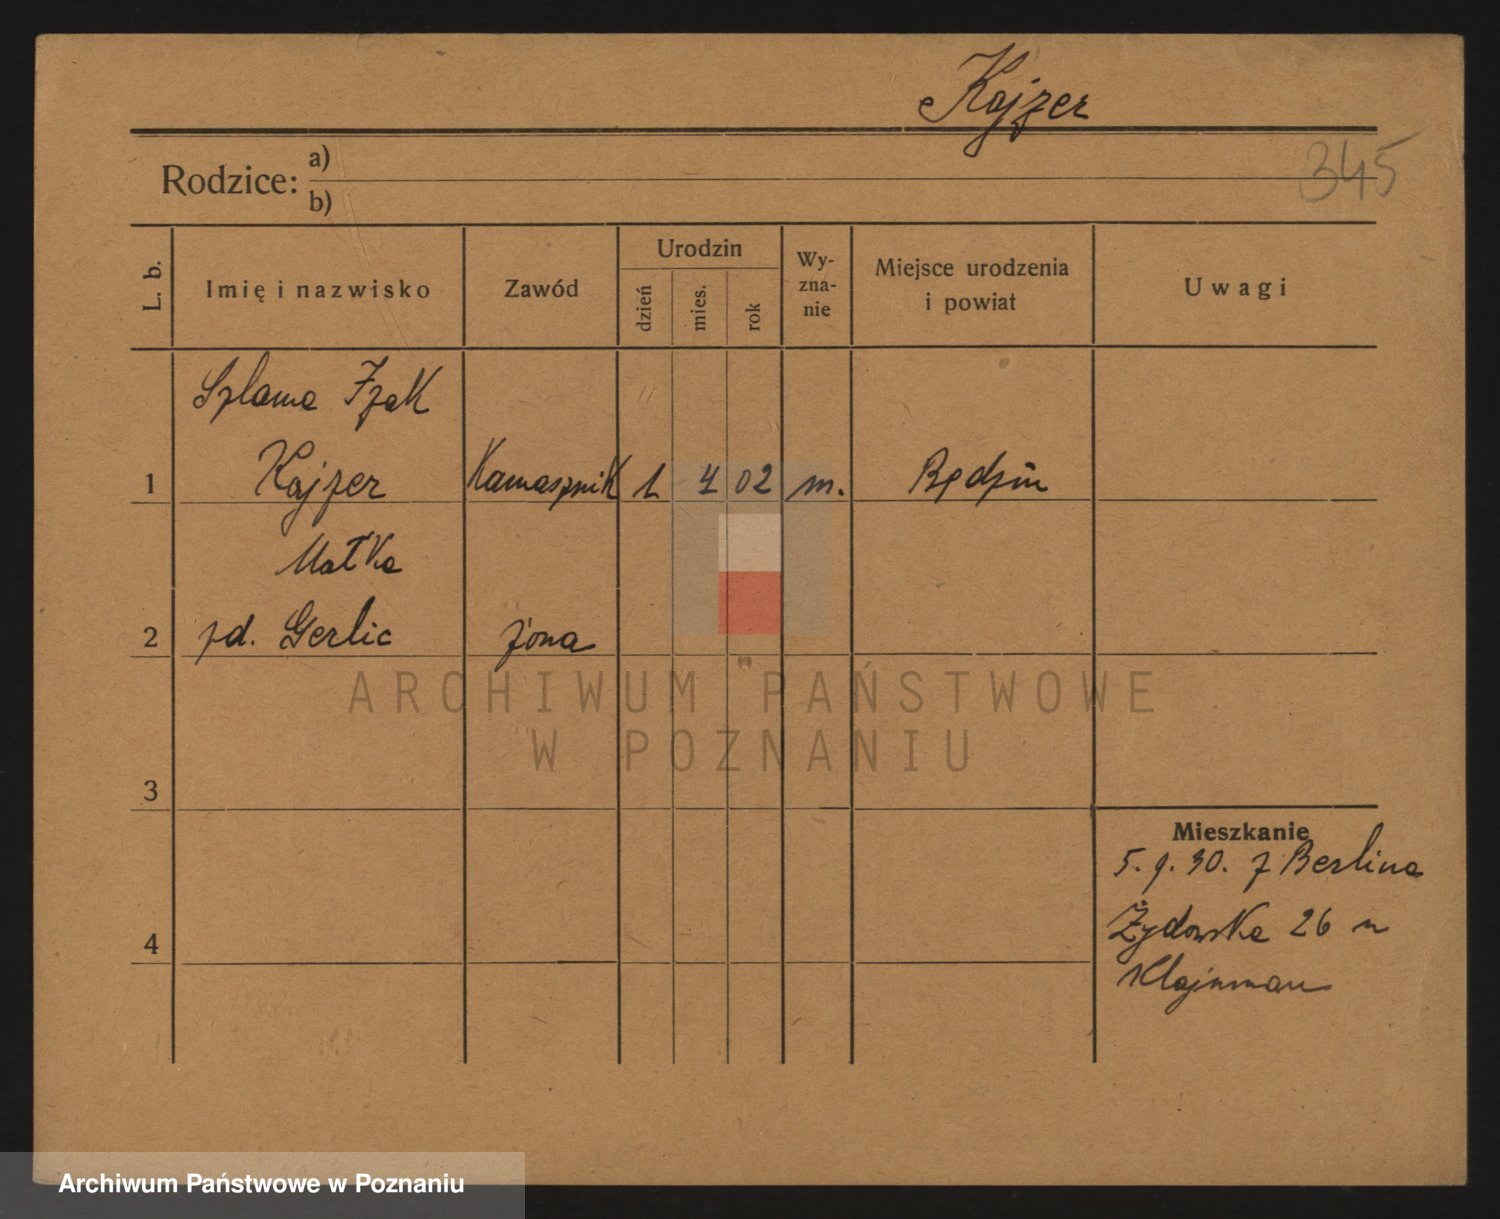 Kajzer
345
Rodzice: a)
b)
L. b.
Imię i nazwisko
Zawód
Urodzin
dzień
mies.
rok
Wy-
zna-
nie
Miejsce urodzenia
i powiat
Uwagi
Szlama Izak
1 Kajzer Kamasznik 1 4 02 m. Będzin
Małka
2 zd. Gerlic żona
3
4
Mieszkanie
5. 9. 30. z Berlina
Żydowska 26 u
Klajnman
ARCHIWUM PAŃSTWOWE
W POZNANIU
Archiwum Państwowe w Poznaniu